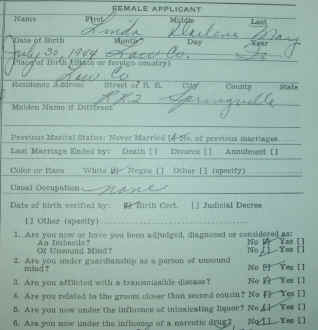 FEMALE APPLICANT
Name First Middle Last
Linda Darlene May
Date of Birth Month Day Year
July 30 1949 Law Co.
Place of Birth (State or foreign country)
Law Co
Residence Address Street or R. R. City County State
RR2 Springville
Maiden Name if Different
Previous Marital Status: Never Married [X] No. of previous marriages
Last Marriage Ended by: Death [ ] Divorce [ ] Annulment [ ]
Color or Race White [X] Negro [ ] Other [ ] (specify)
Usual Occupation none
Date of birth verified by: [X] Birth Cert. [ ] Judicial Decree
[ ] Other (specify)
1. Are you now or have you been adjudged, diagnosed or considered as:
An Imbecile? No [X] Yes [ ]
Of Unsound Mind? No [X] Yes [ ]
2. Are you under guardianship as a person of unsound
mind? No [X] Yes [ ]
3. Are you afflicted with a transmissible disease? No [X] Yes [ ]
4. Are you related to the groom closer than second cousin? No [X] Yes [ ]
5. Are you now under the influence of intoxicating liquor? No [X] Yes [ ]
6. Are you now under the influence of a narcotic drug? No [X] Yes [ ]